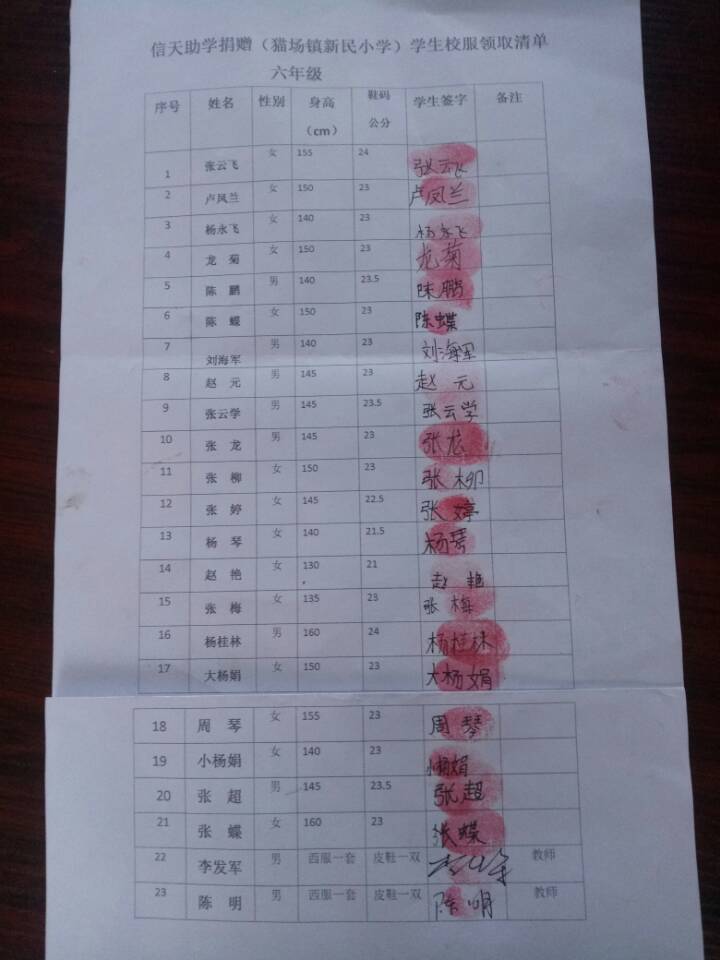 信天助学捐赠（猫场镇新民小学）学生校服领取清单
六年级
序号 姓名 性别 身高（cm） 鞋码公分 学生签字 备注
1 张云飞 女 155 24 张云飞
2 卢凤兰 女 150 23 卢凤兰
3 杨永飞 女 140 23 杨永飞
4 龙 菊 女 150 23 龙菊
5 陈 鹏 男 140 23.5 陈鹏
6 陈 蝶 女 150 23 陈蝶
7 刘海军 男 140 23 刘海军
8 赵 元 男 145 23 赵 元
9 张云学 男 145 23.5 张云学
10 张 龙 男 145 23 张龙
11 张 柳 女 150 23 张 柳
12 张 婷 女 145 22.5 张 婷
13 杨 琴 女 140 21.5 杨琴
14 赵 艳 女 130 21 赵 艳
15 张 梅 女 135 23 张 梅
16 杨桂林 男 160 24 杨桂林
17 大杨娟 女 150 23 大杨娟
18 周 琴 女 155 23 周 琴
19 小杨娟 女 140 23 小杨娟
20 张 超 男 145 23.5 张超
21 张 蝶 女 160 23 张蝶
22 李发军 男 西服一套 皮鞋一双 教师
23 陈 明 男 西服一套 皮鞋一双 陈明 教师